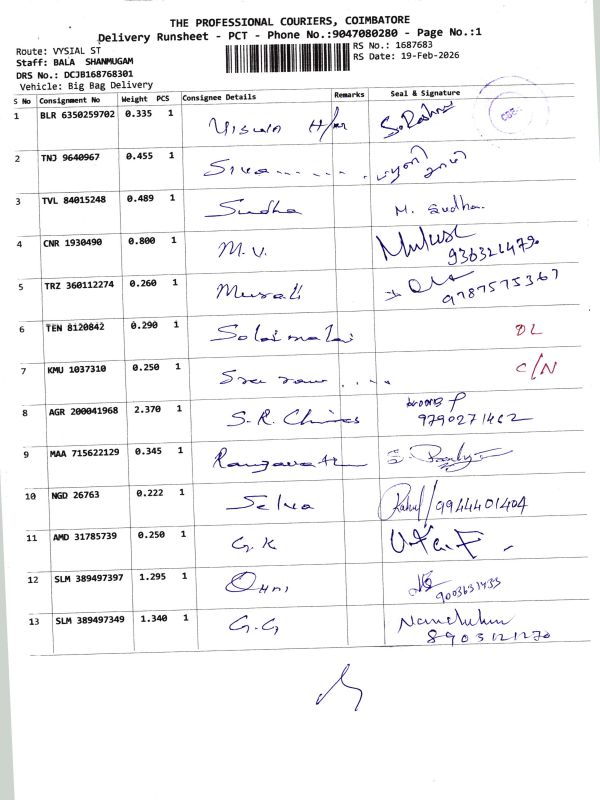 THE PROFESSIONAL COURIERS, COIMBATORE
Delivery Runsheet - PCT - Phone No.:9047080280 - Page No.:1
Route: VYSIAL ST
RS No.: 1687683
Staff: BALA SHANMUGAM
RS Date: 19-Feb-2026
DRS No.: DCJB168768301
Vehicle: Big Bag Delivery
S No Consignment No Weight PCS Consignee Details Remarks Seal & Signature
1 BLR 6350259702 0.335 1
2 TNJ 9640967 0.455 1 Siva
3 TVL 84015248 0.489 1 Sudha M. Sudha.
4 CNR 1930490 0.800 1 M.V.
5 TRZ 360112274 0.260 1 Murali 9787575367
6 TEN 8120842 0.290 1 Solaimalai DL
7 KMU 1037310 0.250 1 C/N
8 AGR 200041968 2.370 1 S.R. 9790271462
9 MAA 715622129 0.345 1
10 NGD 26763 0.222 1 Selva Rahul/9944401404
11 AMD 31785739 0.250 1 G.K
12 SLM 389497397 1.295 1
13 SLM 389497349 1.340 1 G.G
8903121270